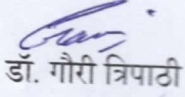 डॉ. गौरी त्रिपाठी